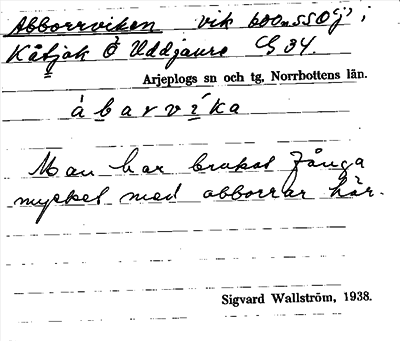 Abborrviken vik 600 m SSO Gj i
Kåtjok Ö Uddjaure G 34.
Arjeplogs sn och tg, Norrbottens län.
àbarvíka
Man har brukat fånga
mycket med abborrar här.
Sigvard Wallström, 1938.